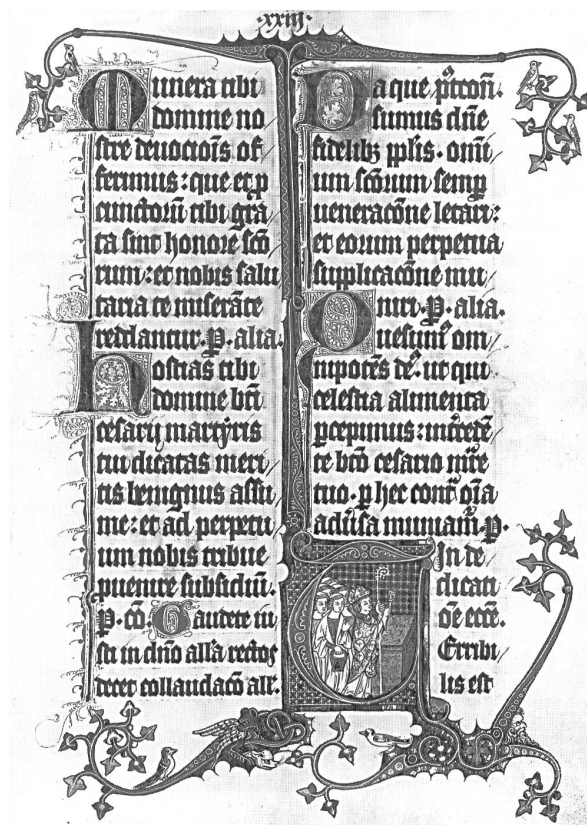 ·xxiij·
Munera tibi
domine no
stre deuocõis of
ferimus: que et p
cunctorũ tibi gra
ta sint honore scõ
rum: et nobis salu
taria te miserãte
reddantur. P. alia.
Hostias tibi
domine bti
cesarij martyris
tui dicatas meri
tis benignus assu
me: et ad perpetu
um nobis tribue
puenire subsidiũ.
P. cõ. Gaudete iu
sti in dño alla rectos
decet collaudacõ all'.
Da que
sumus dñe
fidelibz pplis · omi
um scõrum semp
ueneracõne letari:
et eorum perpetua
supplicacõne mu
niri. P. alia.
Quesum' om
nipotẽs de'. ut qui
celestia alimenta
pcepimus:
te btõ cesario
tuo · p hec
P.
In de
dicati
õe ecce.
Terribi
lis est